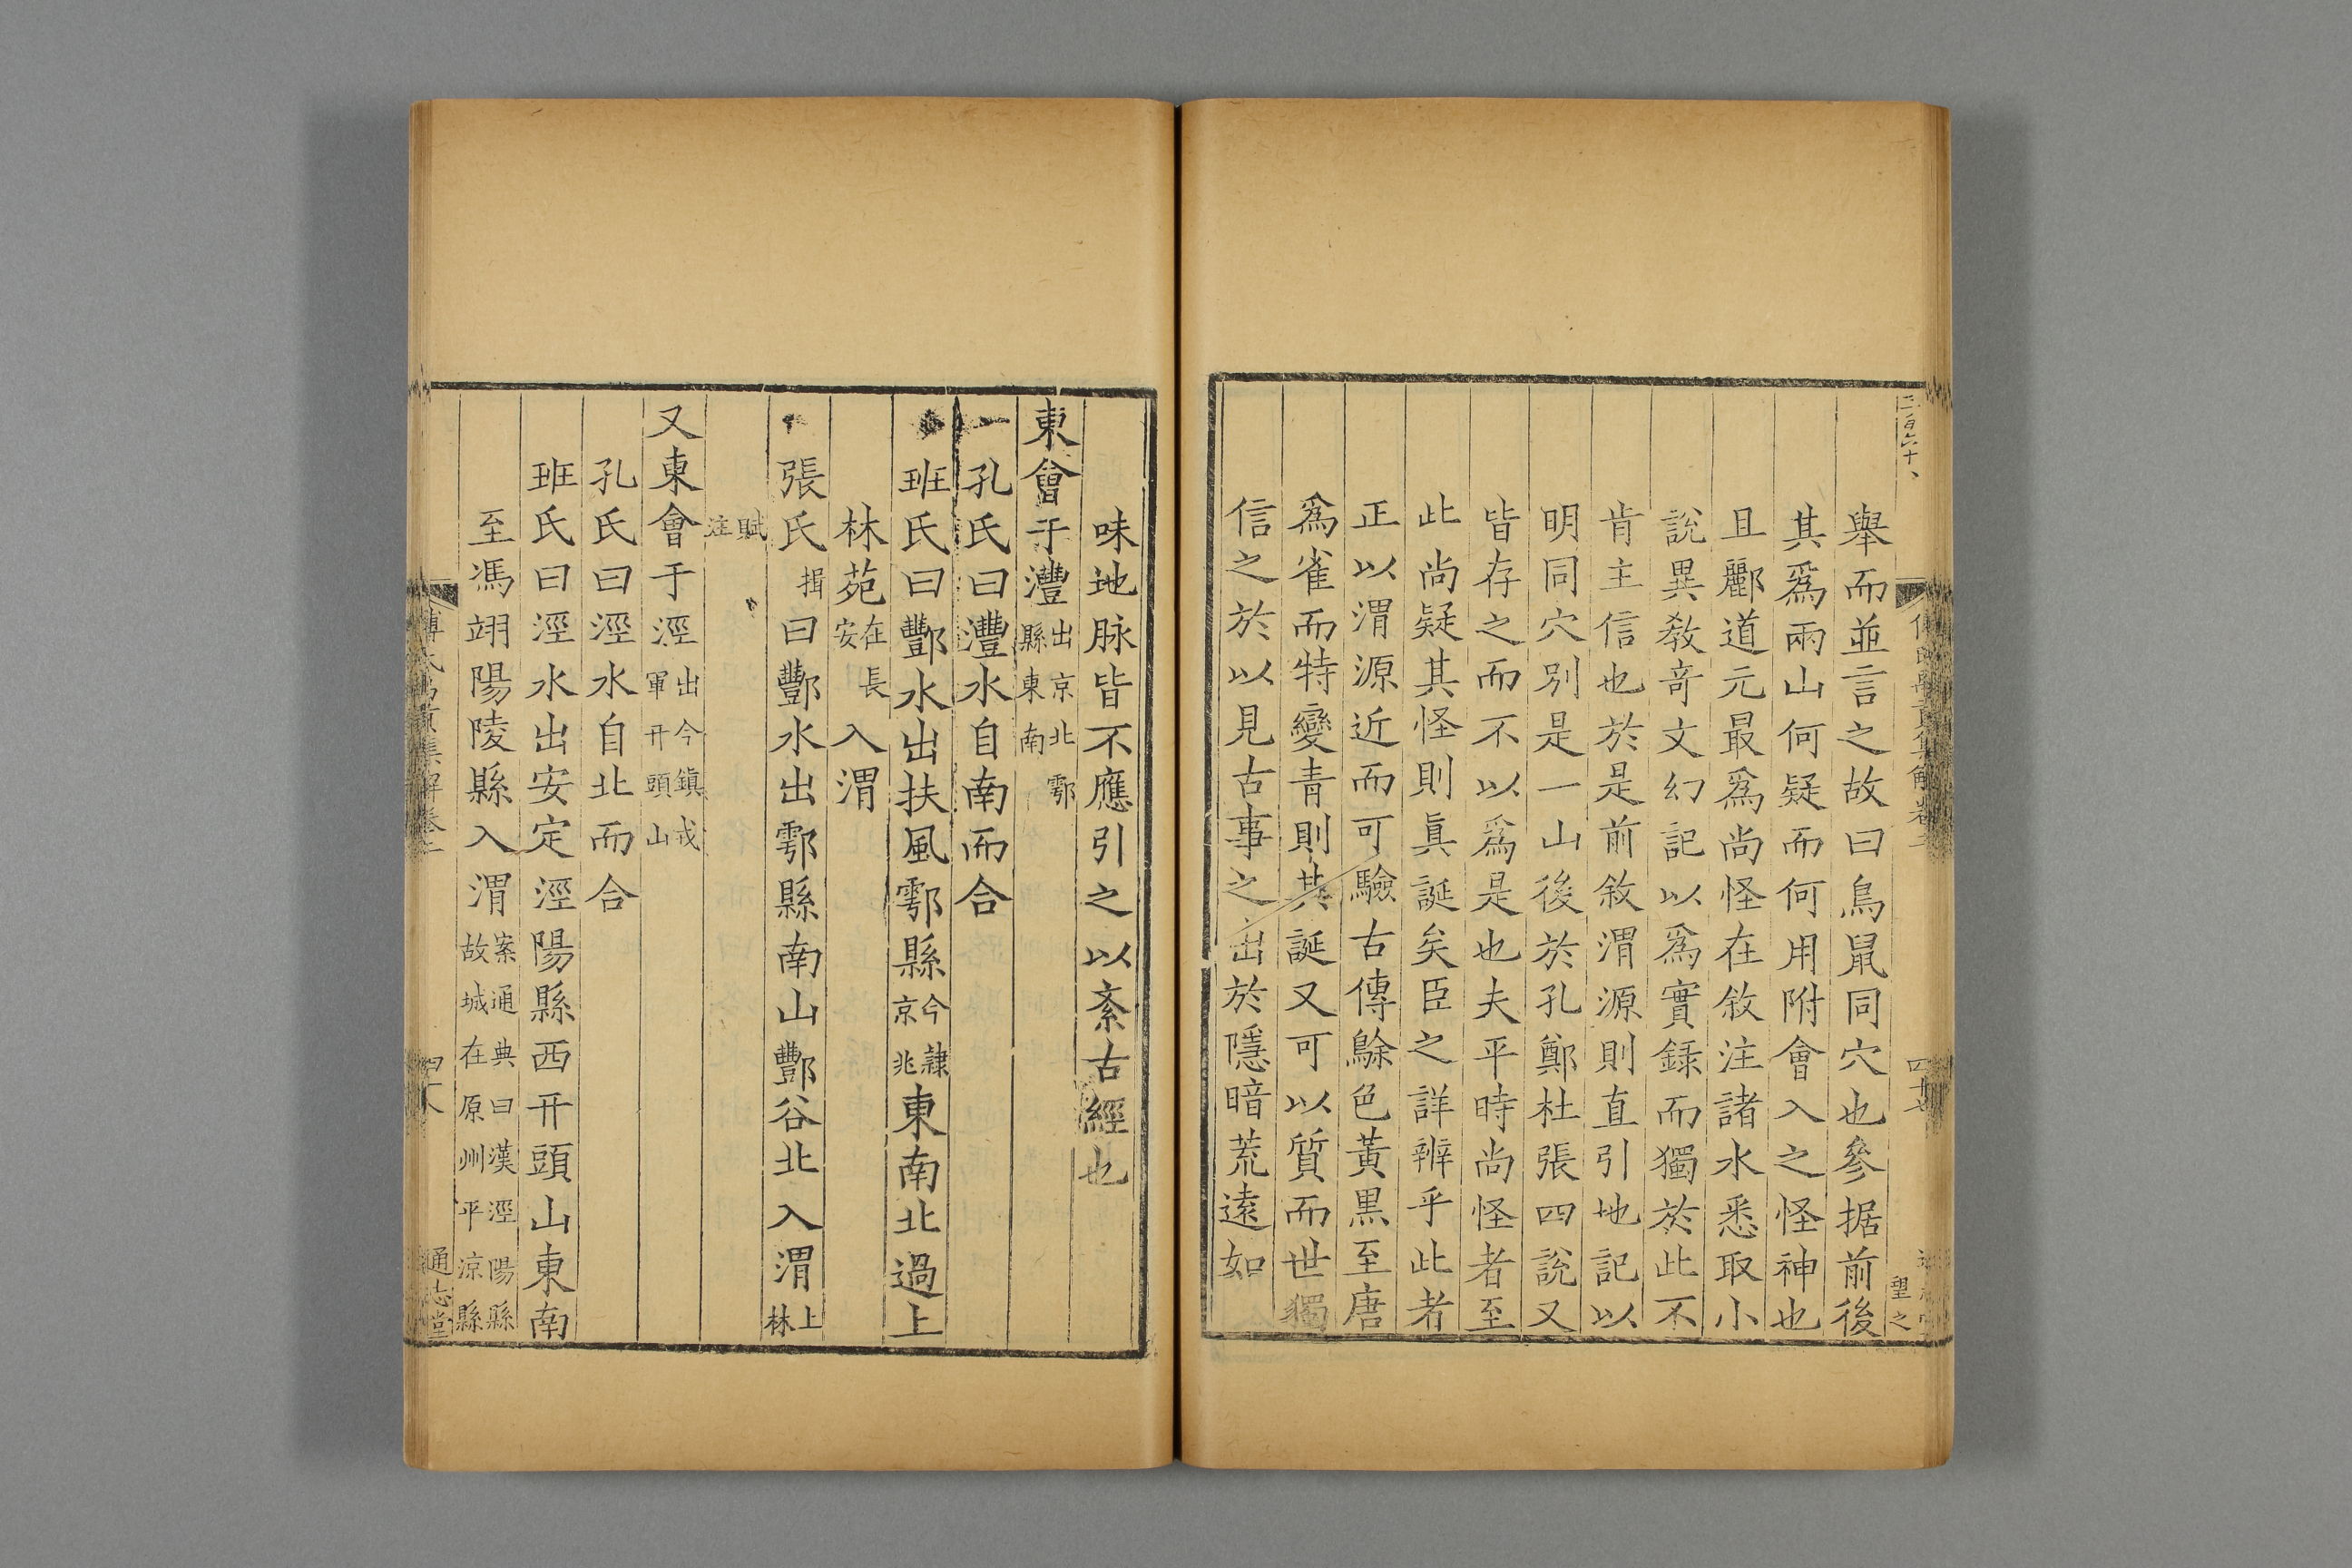 三百六十、
舉而並言之故曰鳥鼠同穴也參据前後
其爲兩山何疑而何用附會入之怪神也
且酈道元最爲尚怪在敘注諸水悉取小
說異教竒文幻記以爲實録而獨於此不
肯主信也於是前敘渭源則直引地記以
明同穴别是一山後於孔鄭杜張四說又
皆存之而不以爲是也夫平時尚怪者至
此尚疑其怪則眞誕矣臣之詳辨乎此者
正以渭源近而可驗古傳鵌色黃黒至唐
爲雀而特變青則其誕又可以質而世獨
信之於以見古事之出於隱暗荒遠如
望之
味地脉皆不應引之以紊古經也
東會于灃出京北鄠縣東南
孔氏曰灃水自南而合
班氏曰酆水出扶風鄠縣今隷京兆東南北過上
林苑在長安入渭
張氏揖曰酆水出鄠縣南山酆谷北入渭上林
賦注
又東會于涇出今鎮戎軍幵頭山
孔氏曰涇水自北而合
班氏曰涇水出安定涇陽縣西幵頭山東南
至馮翊陽陵縣入渭案通典曰漢涇陽縣故城在原州平涼縣
傅氏禹貢集解卷二
四十八
通志堂